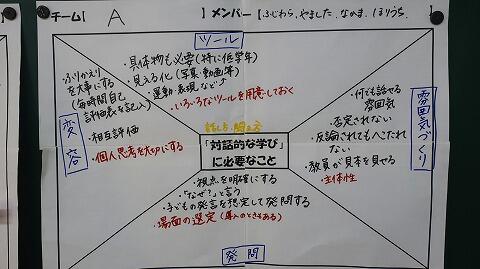 チーム【 A 】メンバー【ふじわら、やました、なかま、ほりうち、
ツール
・具体物も必要(特に低学年)
・見える化(写真・動画等)
・運動・表現など
・いろいろなツールを用意しておく
変容
・ふりかえりを大事にする
(毎時間自己評価表を記入)
・相互評価
・個人思考を大切にする
雰囲気づくり
・何でも話せる
雰囲気
・否定されない
・反論されてもへこたれ
ない
・教員が見本を見せる
・主体性
話し方・聞き方
「対話的な学び」
に必要なこと
・視点を明確にする
・「なぜ?」と言う
・子どもの発言を想定して発問する
・場面の選定(導入のときもある)
発問